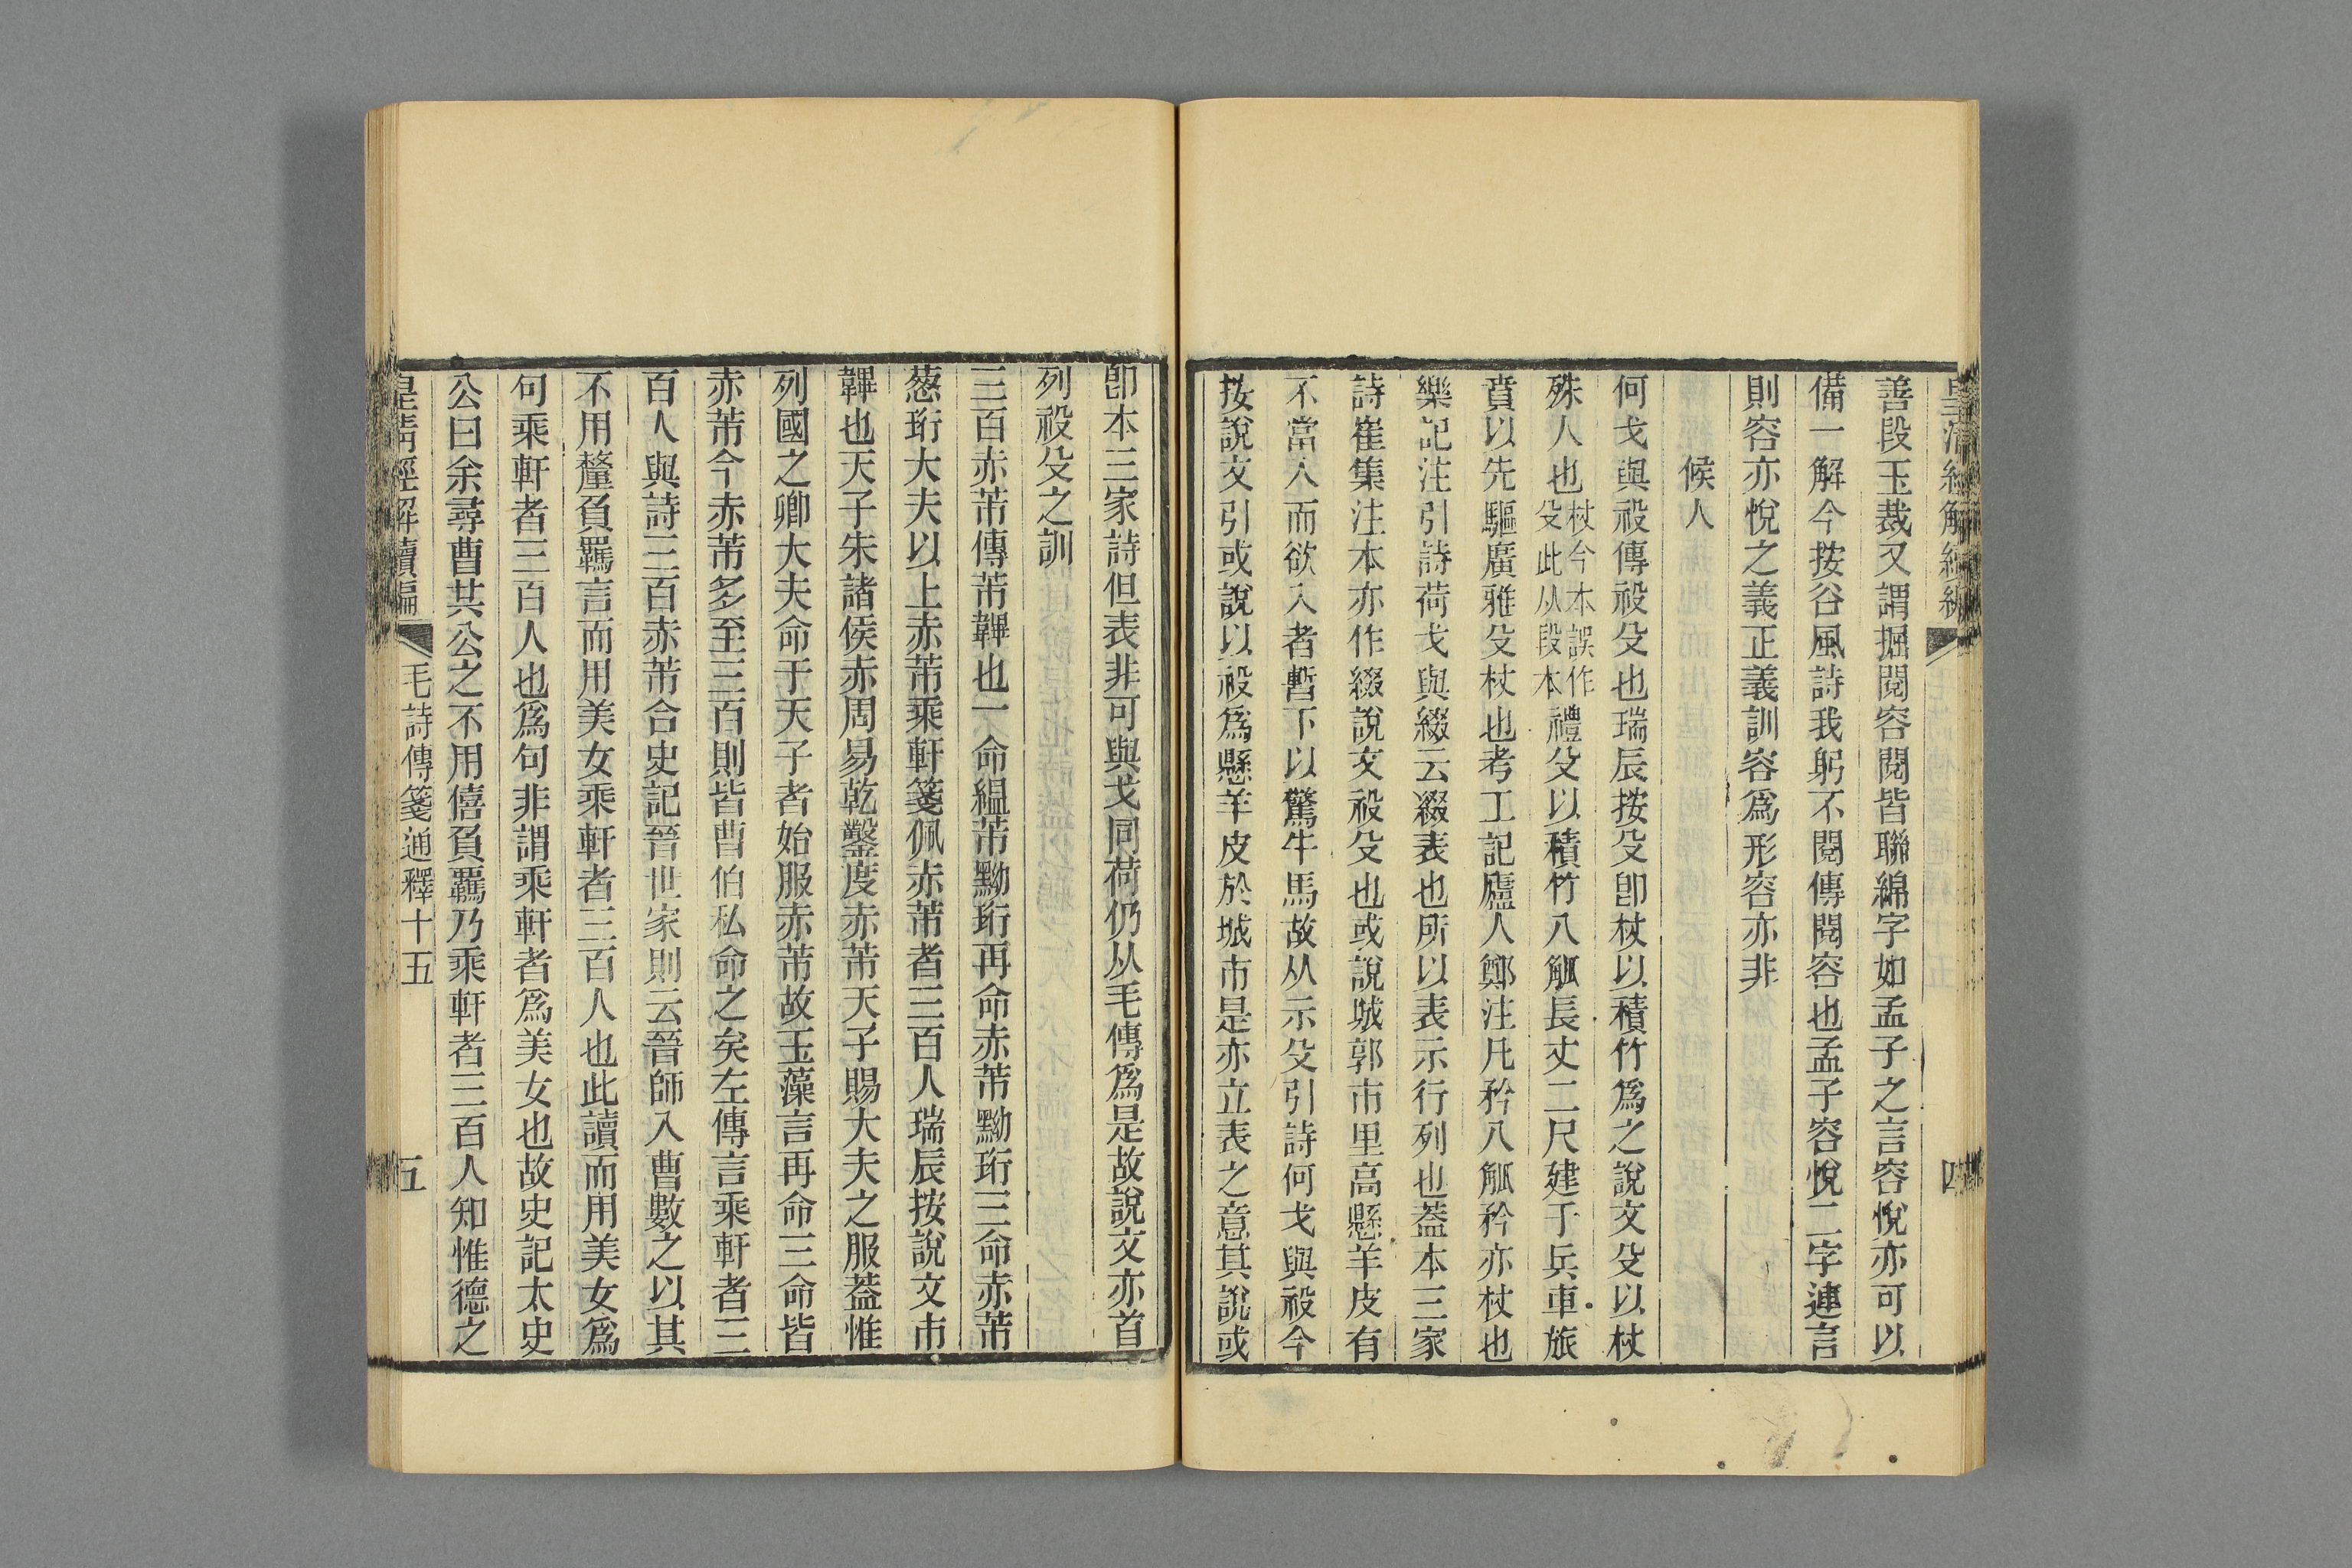 善段玉裁又謂掘閱容閱皆聯綿字如孟子之言容悅亦可以
備一解今按谷風詩我躬不閱傳閱容也孟子容悅二字連言
則容亦悅之義正義訓容爲形容亦非
候人
何戈與祋傳祋殳也瑞辰按殳卽杖以積竹爲之說文殳以杖
殊人也杖今本誤作殳此从段本禮殳以積竹八觚長丈二尺建于兵車旅
賁以先驅廣雅殳杖也考工記廬人鄭注凡矜八觚矜亦杖也
樂記注引詩荷戈與綴云綴表也所以表示行列也葢本三家
詩崔集注本亦作綴說文祋殳也或說城郭市里高懸羊皮有
不當入而欲入者暫下以驚牛馬故从示殳引詩何戈與祋今
按說文引或說以祋爲懸羊皮於城市是亦立表之意其說或
卽本三家詩但表非可與戈同荷仍从毛傳爲是故說文亦首
列祋殳之訓
三百赤芾傳芾韠也一命縕芾黝珩再命赤芾黝珩三命赤芾
蔥珩大夫以上赤芾乘軒箋佩赤芾者三百人瑞辰按說文巿
韠也天子朱諸侯赤周易乾鑿度赤芾天子賜大夫之服葢惟
列國之卿大夫命于天子者始服赤芾故玉藻言再命三命皆
赤芾今赤芾多至三百則皆曹伯私命之矣左傳言乘軒者三
百人與詩三百赤芾合史記晉世家則云晉師入曹數之以其
不用釐負羈言而用美女乘軒者三百人也此讀而用美女爲
句乘軒者三百人也爲句非謂乘軒者爲美女也故史記太史
公曰余尋曹共公之不用僖負羈乃乘軒者三百人知惟德之
皇清經解續編 毛詩傳箋通釋十五 五